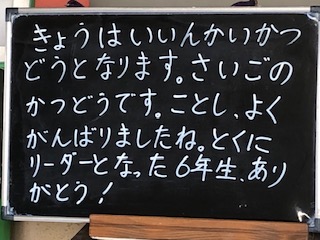 きょうはいいんかいかつ
どうとなります。さいごの
かつどうです。ことし、よく
がんばりましたね。とくに
リーダーとなった6年生、あり
がとう!